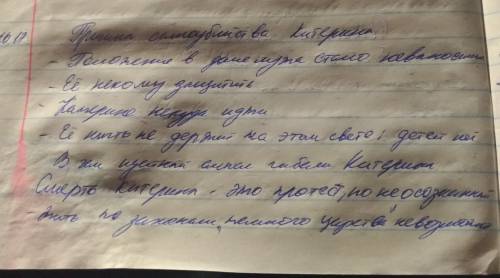 Причина самоубийства Катерины.
- Положение в доме мужа стало невыносимым
- Её некому защитить
- Катерине некуда идти
- Её ничто не держит на этом свете: детей нет
В чём истинный смысл гибели Катерины
Смерть Катерины - это протест, но неосознанный
- Жить по законам "темного царства" невозможно